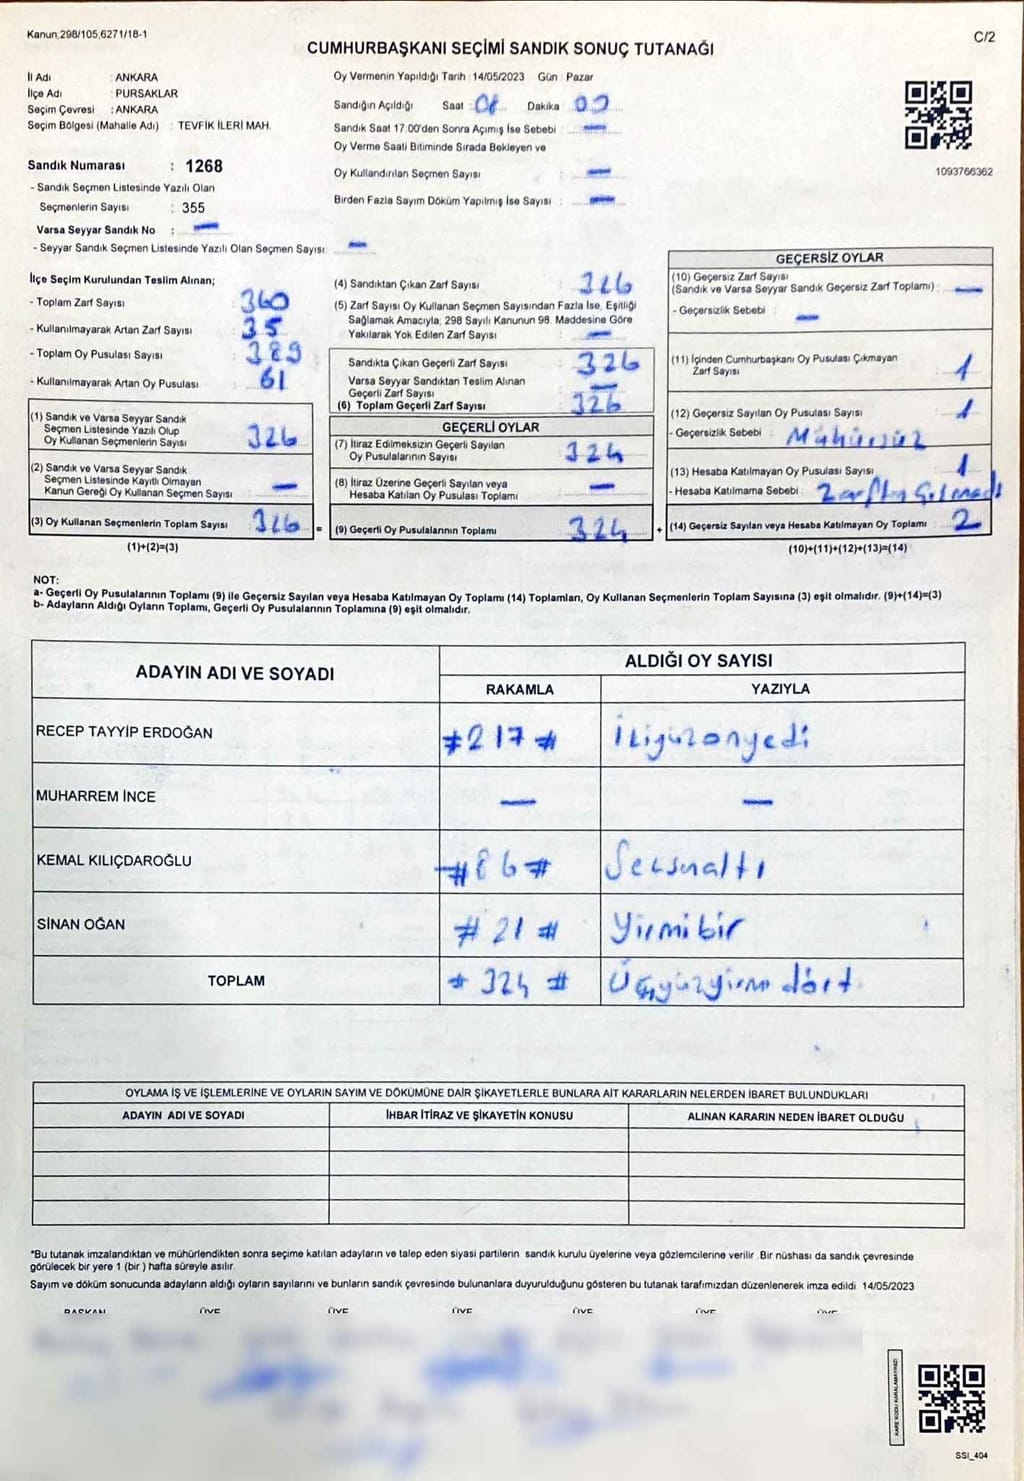 Kanun:298/105,6271/18-1
C/2
CUMHURBAŞKANI SEÇİMİ SANDIK SONUÇ TUTANAĞI
İl Adı : ANKARA
İlçe Adı : PURSAKLAR
Seçim Çevresi : ANKARA
Seçim Bölgesi (Mahalle Adı) : TEVFİK İLERİ MAH.
Oy Vermenin Yapıldığı Tarih : 14/05/2023 Gün : Pazar
Sandığın Açıldığı Saat : 08 Dakika : 00
Sandık Saat 17.00'den Sonra Açımış İse Sebebi : —
Oy Verme Saati Bitiminde Sırada Bekleyen ve
Oy Kullandırılan Seçmen Sayısı : —
Birden Fazla Sayım Döküm Yapılmış İse Sayısı : —
1093766362
Sandık Numarası : 1268
- Sandık Seçmen Listesinde Yazılı Olan
Seçmenlerin Sayısı : 355
Varsa Seyyar Sandık No : —
- Seyyar Sandık Seçmen Listesinde Yazılı Olan Seçmen Sayısı: —
İlçe Seçim Kurulundan Teslim Alınan;
- Toplam Zarf Sayısı : 360
- Kullanılmayarak Artan Zarf Sayısı : 35
- Toplam Oy Pusulası Sayısı : 389
- Kullanılmayarak Artan Oy Pusulası : 61
(1) Sandık ve Varsa Seyyar Sandık
Seçmen Listesinde Yazılı Olup
Oy Kullanan Seçmenlerin Sayısı 326
(2) Sandık ve Varsa Seyyar Sandık
Seçmen Listesinde Kayıtlı Olmayan
Kanun Gereği Oy Kullanan Seçmen Sayısı —
(3) Oy Kullanan Seçmenlerin Toplam Sayısı 326 =
(1)+(2)=(3)
(4) Sandıktan Çıkan Zarf Sayısı 326
(5) Zarf Sayısı Oy Kullanan Seçmen Sayısından Fazla İse, Eşitliği
Sağlamak Amacıyla, 298 Sayılı Kanunun 98. Maddesine Göre
Yakılarak Yok Edilen Zarf Sayısı —
Sandıkta Çıkan Geçerli Zarf Sayısı 326
Varsa Seyyar Sandıktan Teslim Alınan
Geçerli Zarf Sayısı —
(6) Toplam Geçerli Zarf Sayısı 326
GEÇERLİ OYLAR
(7) İtiraz Edilmeksizin Geçerli Sayılan
Oy Pusulalarının Sayısı 324
(8) İtiraz Üzerine Geçerli Sayılan veya
Hesaba Katılan Oy Pusulası Toplamı —
(9) Geçerli Oy Pusulalarının Toplamı 324 +
GEÇERSİZ OYLAR
(10) Geçersiz Zarf Sayısı
(Sandık ve Varsa Seyyar Sandık Geçersiz Zarf Toplamı) : —
- Geçersizlik Sebebi : —
(11) İçinden Cumhurbaşkanı Oy Pusulası Çıkmayan
Zarf Sayısı 1
(12) Geçersiz Sayılan Oy Pusulası Sayısı 1
- Geçersizlik Sebebi : Mühürsüz
(13) Hesaba Katılmayan Oy Pusulası Sayısı 1
- Hesaba Katılmama Sebebi : Zarftan Çıkmadı
(14) Geçersiz Sayılan veya Hesaba Katılmayan Oy Toplamı 2
(10)+(11)+(12)+(13)=(14)
NOT:
a- Geçerli Oy Pusulalarının Toplamı (9) ile Geçersiz Sayılan veya Hesaba Katılmayan Oy Toplamı (14) Toplamları, Oy Kullanan Seçmenlerin Toplam Sayısına (3) eşit olmalıdır. (9)+(14)=(3)
b- Adayların Aldığı Oyların Toplamı, Geçerli Oy Pusulalarının Toplamına (9) eşit olmalıdır.
ADAYIN ADI VE SOYADI
ALDIĞI OY SAYISI
RAKAMLA YAZIYLA
RECEP TAYYİP ERDOĞAN #217# İkiyüzonyedi
MUHARREM İNCE — —
KEMAL KILIÇDAROĞLU #86# Seksenaltı
SİNAN OĞAN #21# Yirmibir
TOPLAM #324# Üçyüzyirmidört
OYLAMA İŞ VE İŞLEMLERİNE VE OYLARIN SAYIM VE DÖKÜMÜNE DAİR ŞİKAYETLERLE BUNLARA AİT KARARLARIN NELERDEN İBARET BULUNDUKLARI
ADAYIN ADI VE SOYADI İHBAR İTİRAZ VE ŞİKAYETİN KONUSU ALINAN KARARIN NEDEN İBARET OLDUĞU
*Bu tutanak imzalandıktan ve mühürlendikten sonra seçime katılan adayların ve talep eden siyasi partilerin sandık kurulu üyelerine veya gözlemcilerine verilir. Bir nüshası da sandık çevresinde
görülecek bir yere 1 (bir) hafta süreyle asılır.
Sayım ve döküm sonucunda adayların aldığı oyların sayılarını ve bunların sandık çevresinde bulunanlara duyurulduğunu gösteren bu tutanak tarafımızdan düzenlenerek imza edildi. 14/05/2023
BAŞKAN ÜYE ÜYE ÜYE ÜYE ÜYE ÜYE
KARE KODU KARALAMAYINIZ!
SSI_404